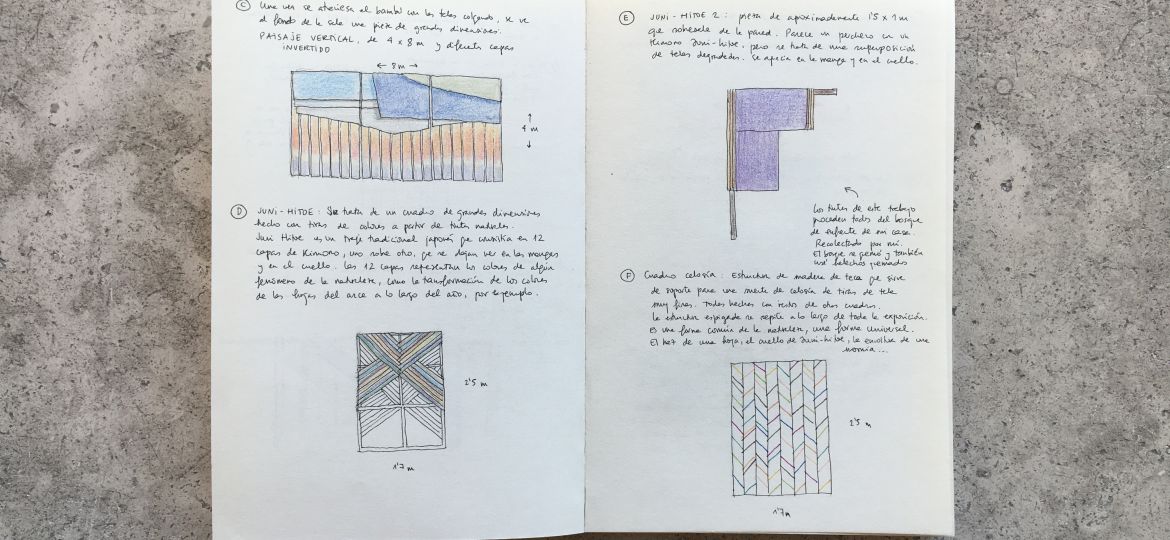 C Una vez se atraviesa el bambú con las telas colgando, se ve
al fondo de la sala una pieza de grandes dimensiones.
PAISAJE VERTICAL, de 4 x 8 m y diferentes capas
INVERTIDO
← 8 m →
↑
4 m
↓
D JUNI-HITOE: Se trata de un cuadro de grandes dimensiones
hecho con tiras de colores a partir de tintes naturales.
Juni Hitoe es un traje tradicional japonés que consistía en 12
capas de kimono, uno sobre otro, que se dejan ver en las mangas
y en el cuello. Las 12 capas representan los colores de algún
fenómeno de la naturaleza, como la transformación de los colores
de las hojas del arce a lo largo del año, por ejemplo.
2'5 m
1'7 m
E JUNI-HITOE 2: pieza de aproximadamente 1'5 x 1 m
que sobresale de la pared. Parece un perchero con un
kimono Juni-hitoe, pero se trata de una superposición
de telas degradadas. Se aprecia en la manga y en el cuello.
Los tintes de este trabajo
proceden todos del bosque
de enfrente de mi casa.
Recolectado por mi.
El bosque se quemó y también
usé helechos quemados
F Cuadro celosía: Estructura de madera de teca que sirve
de soporte para una suerte de celosía de tiras de tela
muy finas. Todas hechas con restos de otros cuadros.
La estructura espigada se repite a lo largo de toda la exposición.
Es una forma común de la naturaleza, una forma universal.
El haz de una hoja, el cuello de Juni-hitoe, la envoltura de una
momia...
2'5 m
1'7 m